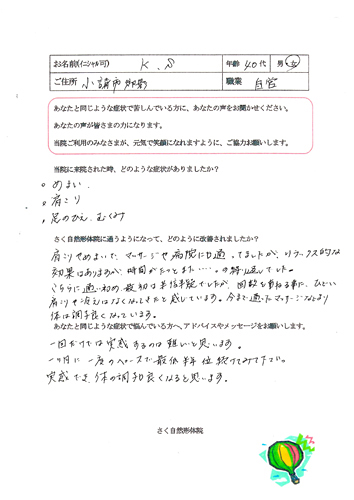 お名前(イニシャル可) K.S 年齢 40代 男・女
ご住所 小諸市御影 職業 自営
あなたと同じような症状で苦しんでいる方に、あなたの声をお聞かせください。
あなたの声が皆さまの力になります。
当院ご利用のみなさまが、元気で笑顔になれますように、ご協力お願いします。
当院に来院された時、どのような症状がありましたか?
。めまい
。肩こり
。足のひえ、むくみ
さく自然形体院に通うようになって、どのように改善されましたか?
肩こりやめまいで、マッサージや病院にも通ってましたが、リラックス的な
効果はありますが、時間がたつとまた……。の繰り返しでした。
こちらに通い初め、最初は半信半疑でしたが、回数を重ねる事に、ひどい
肩こりや冷えはなくなしきたと感じています。今まで通ったマッサージなどより
体は調子良くなっています。
あなたと同じような症状で悩んでいる方へ、アドバイスやメッセージをお願いします。
一回だけでは実感するのは難いと思います。
一ヶ月に一度のペースで最低半年位続けてみて下さい。
実感でき、体の調子良くなると思います。
さく自然形体院